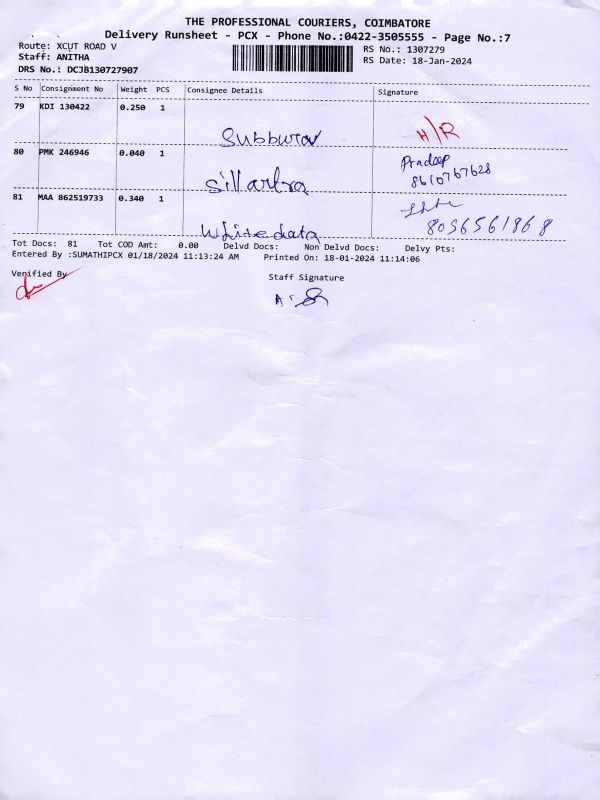 THE PROFESSIONAL COURIERS, COIMBATORE
Delivery Runsheet - PCX - Phone No.:0422-3505555 - Page No.:7
Route: XCUT ROAD V
RS No.: 1307279
Staff: ANITHA
RS Date: 18-Jan-2024
DRS No.: DCJB130727907
S No Consignment No Weight PCS Consignee Details Signature
79 KDI 130422 0.250 1
Subburav H/R
80 PMK 246946 0.040 1 Pradeep
8610767628
81 MAA 862519733 0.340 1
Whitedata 8056561868
Tot Docs: 81 Tot COD Amt: 0.00 Delvd Docs: Non Delvd Docs: Delvy Pts:
Entered By :SUMATHIPCX 01/18/2024 11:13:24 AM Printed On: 18-01-2024 11:14:06
Verified By
Staff Signature